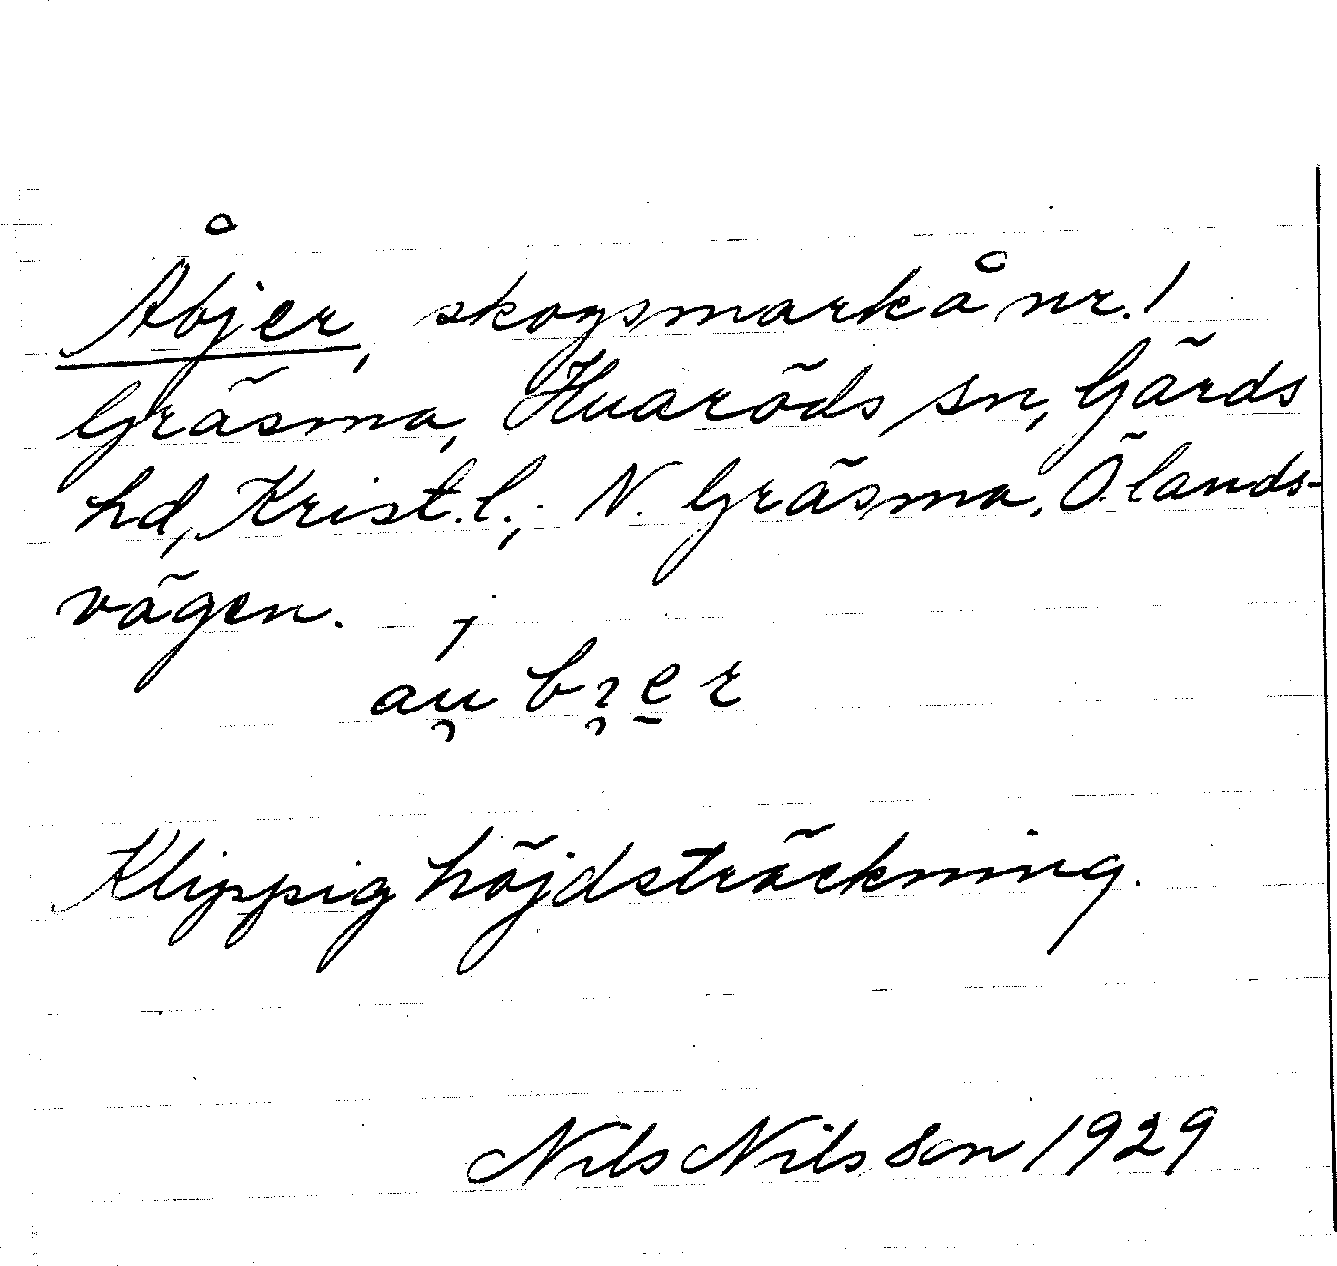 Åbjer, skogsmark å nr. 1
Gräsma, Huaröds sn, Gärds
hd, Krist. l.; N. Gräsma, Ölands-
vägen.
Klippig höjdsträckning.
Nils Nilsson 1929